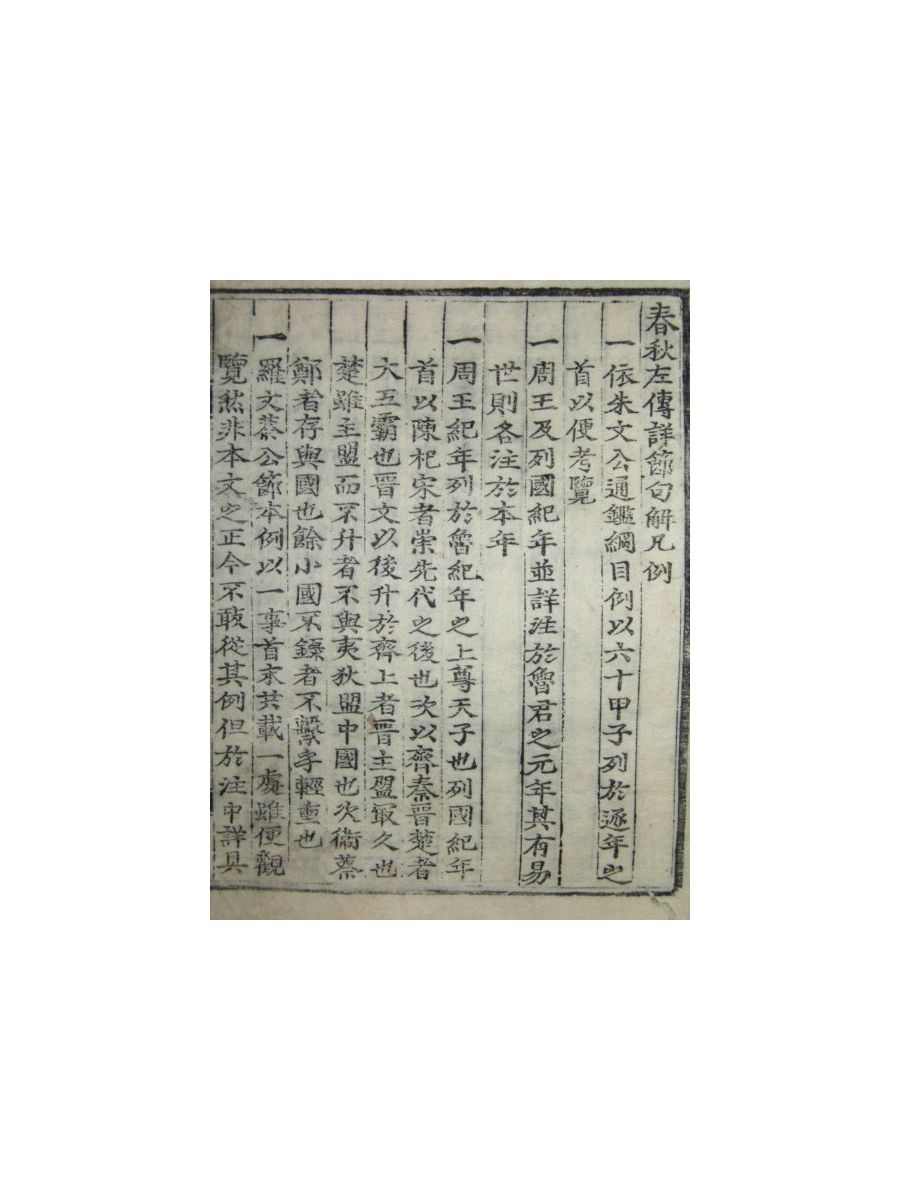 春秋左傳詳節句解凡例
一依朱文公通鑑綱目例以六十甲子列於逐年之
首以便考覽
一周王及列國紀年並詳注於魯君之元年其有易
世則各注於本年
一周王紀年列於魯紀年之上尊天子也列國紀年
首以陳杞宋者崇先代之後也次以齊秦晋楚者
大五霸也晋文以後升於齊上者晋主盟冣久也
楚雖主盟而不升者不與夷狄盟中國也次衛蔡
鄭者存與國也餘小國不錄者不繫乎輕重也
一羅文蔡公節本例以一事首末共載一處雖便觀
覽然非本文之正今不敢從其例但於注中詳具